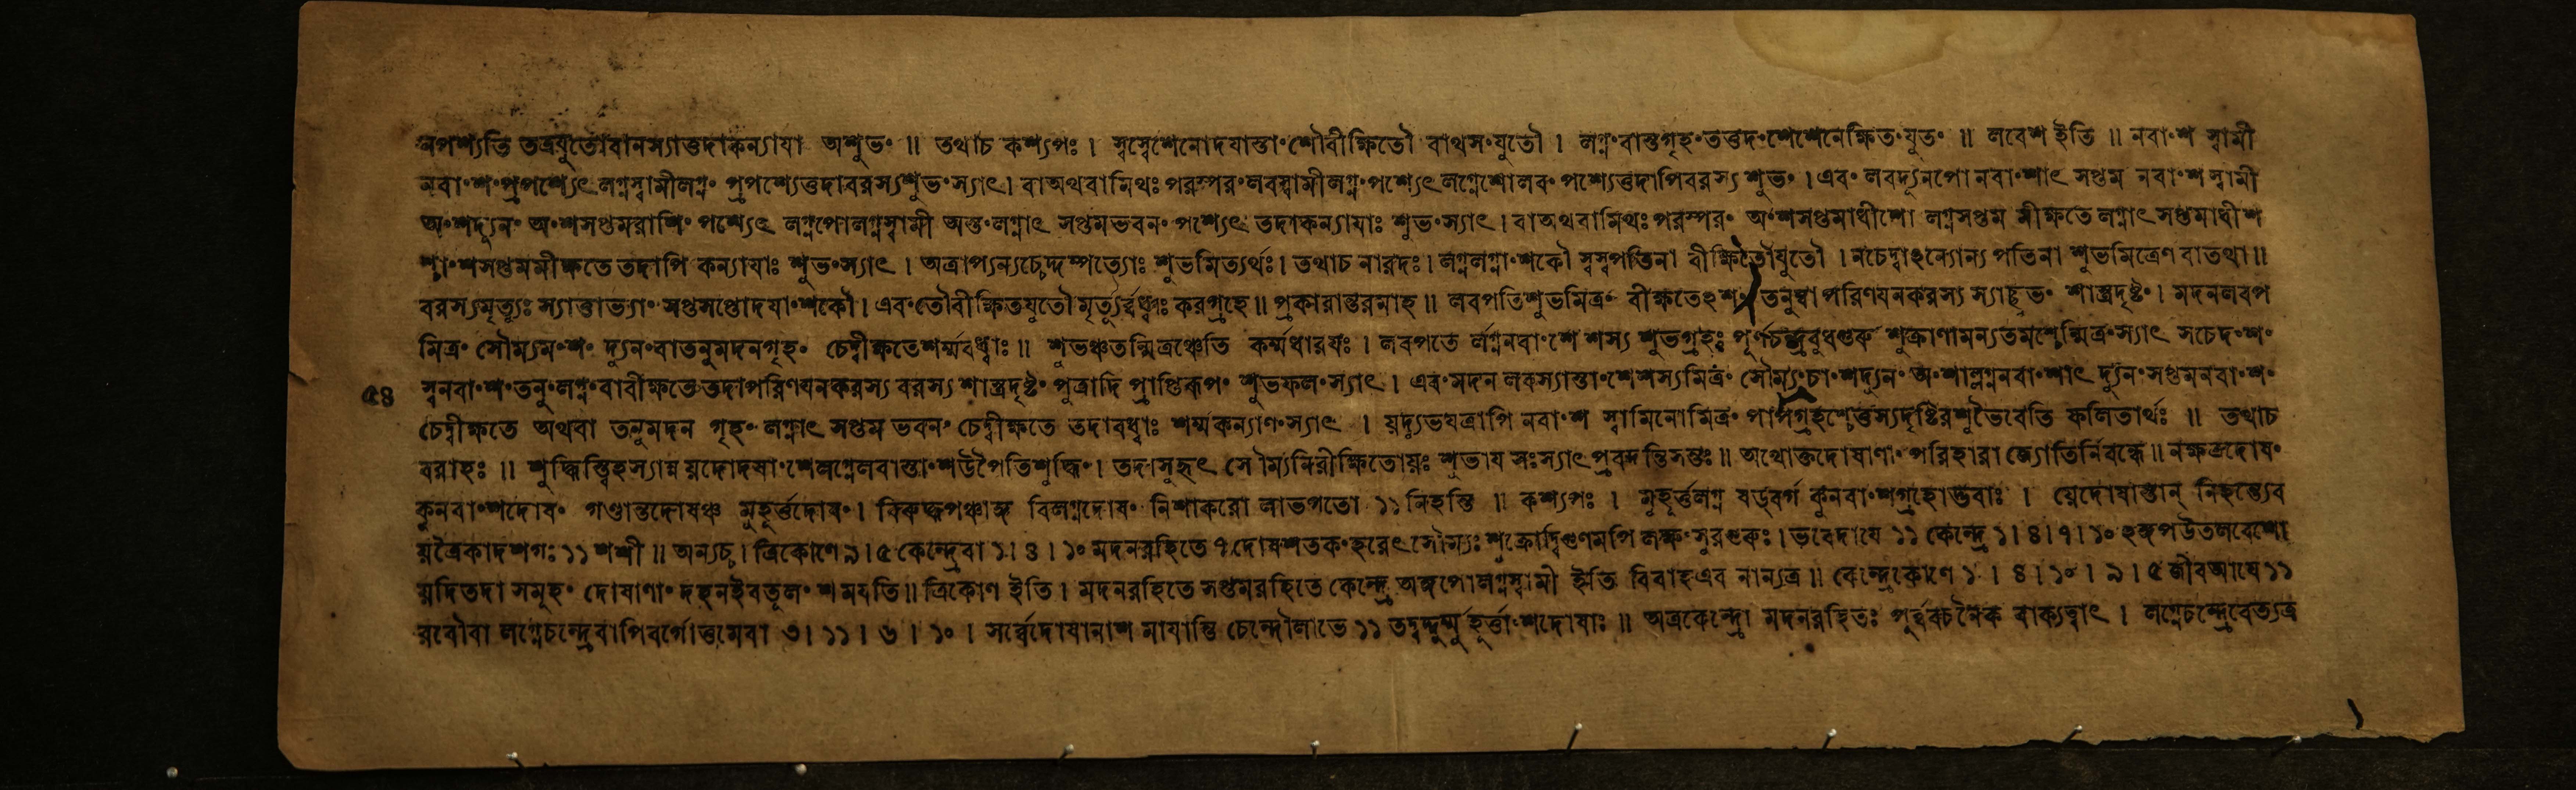 নপশ্যতি তত্রযুতোবানস্যাত্তদাকন্যাযা অশুভং ॥ তথাচ কশ্যপঃ । স্বস্বেশেনোদযাস্তাংশৌবীক্ষিতৌ বাথসংযুতৌ । লগ্নংবাস্তগৃহংতত্তদংশেশেনেক্ষিতংযুতং ॥ লবেশ ইতি ॥ নবাংশ স্বামী
নবাংশংপ্রপশ্যেৎ লগ্নস্বামীলগ্নং প্রপশ্যেত্তদাবরস্যশুভংস্যাৎ। বাঅথবামিথঃ পরস্পরংলবস্বামীলগ্নংপশ্যেৎ লগ্নেশোলবং পশ্যেত্তদাপিবরস্য শুভং । এবং লবদ্যূনপো নবাংশাৎ সপ্তম নবাংশস্বামী
অংশদ্যূনং অংশসপ্তমরাশিং পশ্যেৎ লগ্নপোলগ্নস্বামী অস্তংলগ্নাৎ সপ্তমভবনং পশ্যেৎ তদাকন্যাযাঃ শুভংস্যাৎ । বাঅথবামিথঃ পরস্পরং অংশসপ্তমাধীশো লগ্নসপ্তম মীক্ষতে লগ্নাৎ সপ্তমাধীশ
শ্চাংশসপ্তমমীক্ষতে তদাপি কন্যাযাঃ শুভংস্যাৎ । অত্রাপ্যন্যচ্চেদ্দম্পত্যোঃ শুভমিত্যর্থঃ । তথাচ নারদঃ । লগ্নলগ্নাংশকৌ স্বস্বপতিনা বীক্ষিতৌযুতৌ । নচেদ্বাঽন্যোন্য পতিনা শুভমিত্রেণ বাতথা ॥
বরস্যমৃত্যুঃ স্যাত্তাভ্যাং সপ্তসপ্তোদযাংশকৌ । এবংতৌবীক্ষিতযুতৌ মৃত্যুর্ব্বধ্বাঃ করগ্রহে ॥ প্রকারান্তরমাহ ॥ লবপতিশুভমিত্রং বীক্ষতেঽংশং তনুম্বা পরিণযনকরস্য স্যাচ্ছুভং শাস্ত্রদৃষ্টং । মদনলবপ
মিত্রং সৌম্যমংশং দ্যুনংবাতনুমদনগৃহং চেদ্বীক্ষতেশর্ম্মবধ্বাঃ ॥ শুভঞ্চতন্মিত্রঞ্চেতি কর্ম্মধারযঃ । লবপতে র্লগ্ননবাংশে শস্য শুভগ্রহঃ পূর্ণচন্দ্রবুধগুরু শুক্রাণামন্যতমশ্চেন্মিত্রংস্যাৎ সচেদংশং
স্বনবাংশংতনুংলগ্নংবাবীক্ষতেতদাপরিণযনকরস্য বরস্য শাস্ত্রদৃষ্টং পুত্রাদি প্রাপ্তিরূপং শুভফলংস্যাৎ । এবংমদন লবস্যাস্তাংশেশস্যমিত্রং সৌম্যংচাংশদ্যুনং অংশাল্লগ্ননবাংশাৎ দ্যুনংসপ্তমনবাংশং
৫৪
চেদ্বীক্ষতে অথবা তনুমদন গৃহং লগ্নাৎ সপ্তম ভবনং চেদ্বীক্ষতে তদাবধ্বাঃ শর্ম্মকল্যাণংস্যাৎ । যদ্যুভযত্রাপি নবাংশ স্বামিনোমিত্রং পাপগ্রহশ্চেত্তস্যদৃষ্টিরশুভৈবেতি ফলিতার্থঃ ॥ তথাচ
বরাহঃ ॥ শুদ্ধিস্ত্বিহস্যান্ন যদোদযাংশেলগ্নেলবাস্তাংশউপৈতিশুদ্ধিং। তদাসুহৃৎ সৌম্যনিরীক্ষিতোযঃ শুভায সঃস্যাৎপ্রবদন্তিসন্তঃ ॥ অথোক্তদোষাণাং পরিহারা জ্যোতির্নিবন্ধে ॥ নক্ষত্রদোষং
কুনবাংশদোষং গণ্ডান্তদোষঞ্চ মুহূর্ত্তদোষং । বিরুদ্ধপঞ্চাঙ্গ বিলগ্নদোষং নিশাকরো লাভগতো ১১ নিহন্তি ॥ কশ্যপঃ । মুহূর্ত্তলগ্ন ষড্বর্গ কুনবাংশগ্রহোদ্ভবাঃ । যেদোষাস্তান্ নিহন্ত্যেব
যত্রৈকাদশগঃ ১১ শশী ॥ অন্যচ্চ । ত্রিকোণে ৯ । ৫ কেন্দ্রেবা ১ । ৪ । ১০ মদনরহিতে ৭ দোষশতকংহরেৎসৌম্যঃ শুক্রোদ্বিগুণমপি লক্ষংসুরগুরুঃ । ভবেদাযে ১১ কেন্দ্রে ১ । ৪ । ৭ । ১০ ঽঙ্গপউতলবেশো
যদিতদা সমূহং দোষাণাং দহনইবতূলং শমযতি ॥ ত্রিকোণ ইতি । মদনরহিতে সপ্তমরহিতে কেন্দ্রে অঙ্গপোলগ্নস্বামী ইতি বিবাহএব নান্যত্র ॥ কেন্দ্রেকোণে ১ । ৪ । ১০ । ৯ । ৫ জীবআযে ১১
রবৌবা লগ্নেচন্দ্রেবাপিবর্গোত্তমেবা ৩ । ১১ । ৬ । ১০ । সর্ব্বেদোষানাশ মাযান্তি চেন্দৌলাভে ১১ তদ্বদ্দুর্ম্মুহূর্ত্তাংশদোষাঃ ॥ অত্রকেন্দ্রো মদনরহিতঃ পূর্ব্ববচনৈক বাক্যত্বাৎ । লগ্নেচন্দ্রেবেত্যত্র